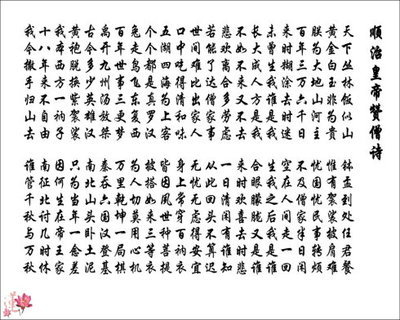 順治皇帝贊僧诗
天下丛林饭似山
钵盂到处任君餐
黄金白玉非为贵
惟有袈裟披肩难
朕为大地山河主
忧国忧民事转烦
百年三万六千日
不及僧家半日闲
来时糊涂去时迷
空在人间走一回
未曾生我谁是我
生我之后我是谁
长大成人方是我
合眼朦胧又是谁
不如不来又不去
悲欢离合多劳虑
一日清闲有谁知
若能了达僧家事
从此回头不算迟
世间难比出家人
无忧无虑得安宜
口中吃得清和味
身上常穿百衲衣
五湖四海为上客
皆因夙世种菩提
个个都是真罗汉
披搭如来三等衣
兔走乌飞东复西
为人切莫用心机
百年世事三更梦
万里乾坤一局棋
禹开九州汤放桀
秦吞六国汉登基
古今多少英雄汉
南北山头卧土泥
黄袍脱换紫袈裟
只为当年一念差
我本西方一衲子
因何生在帝王家
十八年来不自由
南征北讨几时休
我今撒手归山去
谁管千秋与万秋